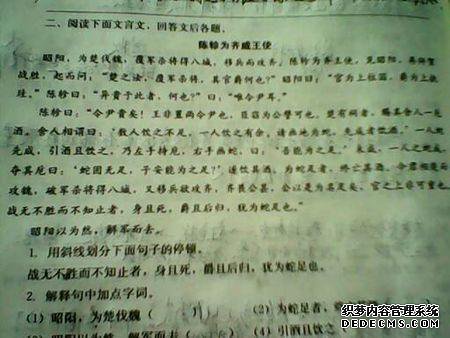 二、阅读下面文言文，回答文后各题。
陈轸为齐威王使
昭阳，为楚伐魏，覆军杀将得八城，移兵而攻齐。陈轸为齐王使，见昭阳，再拜贺
战胜，起而问：“楚之法，覆军杀将，其官爵何也？”昭阳曰：“官为上柱国，爵为上执
珪。”陈轸曰：“异贵于此者，何也？”曰：“唯令尹耳。”
陈轸曰：“令尹贵矣！王非置两令尹也，臣窃为公譬可也。楚有祠者，赐其舍人一卮
酒。舍人相谓曰：‘数人饮之不足，一人饮之有余，请画地为蛇，先成者饮酒。’一人蛇
先成，引酒且饮之，乃左手持卮，右手画蛇，曰：‘吾能为之足。’未成，一人之蛇成，
夺其卮曰：‘蛇固无足，子安能为之足？’遂饮其酒。为蛇足者，终亡其酒。今君相楚而
攻魏，破军杀将得八城，又移兵欲攻齐，齐畏公甚，公以是为名足矣，官之上非可重也。
战无不胜而不知止者，身且死，爵且后归，犹为蛇足也。”
昭阳以为然，解军而去。
1. 用斜线划分下面句子的停顿。
战无不胜而不知止者，身且死，爵且后归，犹为蛇足也。
2. 解释句中加点字词。
(1) 昭阳，为楚伐魏（ ） (2) 为蛇足者，
解军而去（ (4) 引酒且饮之（
状元内容管理系统